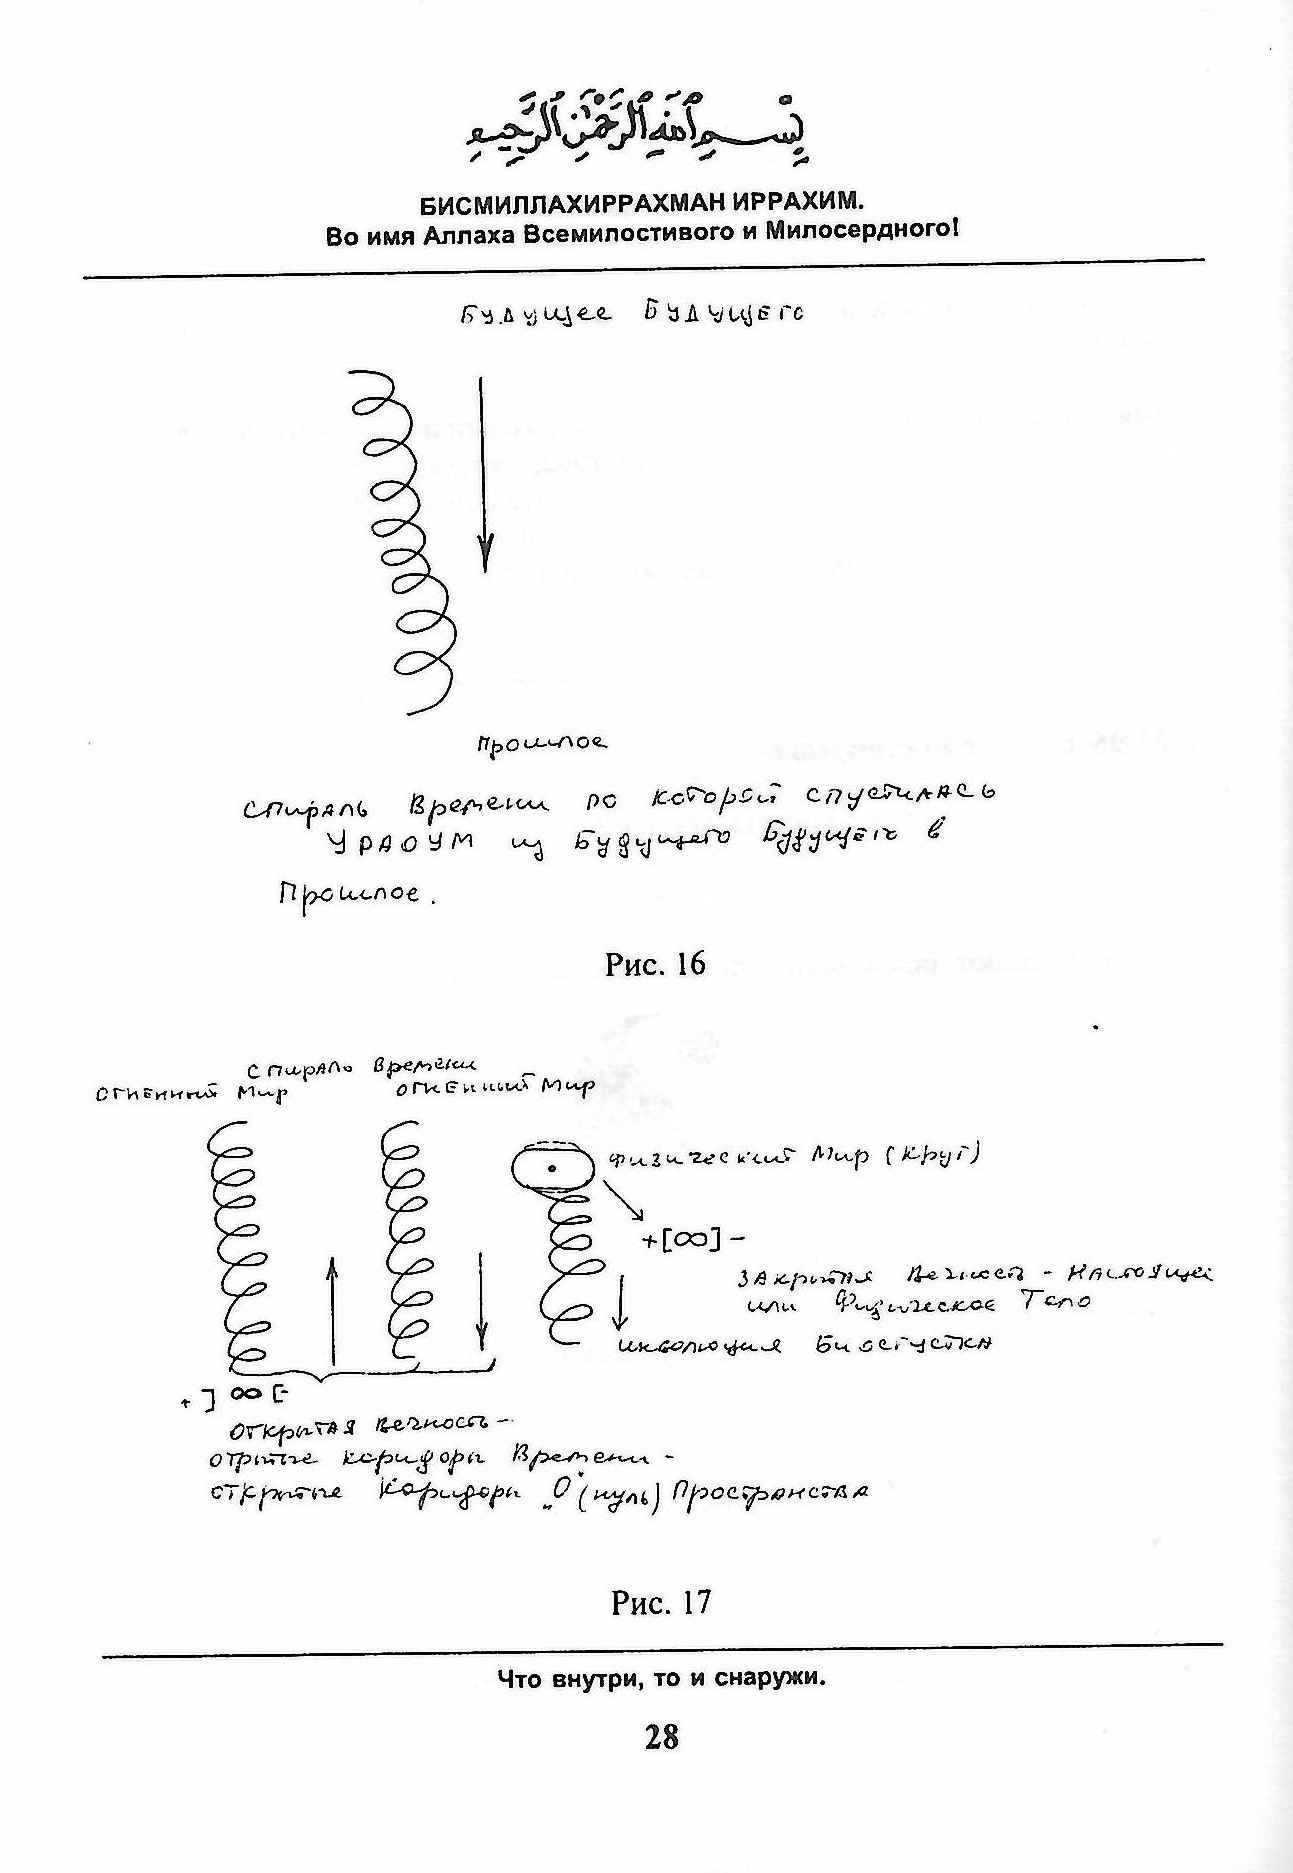 بِسْمِ ٱللَّهِ ٱلرَّحْمَٰنِ ٱلرَّحِيمِ
БИСМИЛЛАХИРРАХМАН ИРРАХИМ.
Во имя Аллаха Всемилостивого и Милосердного!
Будущее Будущего
Прошлое
Спираль Времени по которой спустилась
УРАОУМ из Будущего Будущего в
Прошлое.
Рис. 16
Спираль Времени
Огненный Мир Огненный Мир
Физический Мир (Круг)
+[∞]-
Закрытая Вечность - Настоящее
или Физическое Тело
инволюция
+]∞[-
Открытая Вечность -
Коридоры Времени -
открытие Коридоры „О“ (нуль) Пространства
Рис. 17
Что внутри, то и снаружи.
28